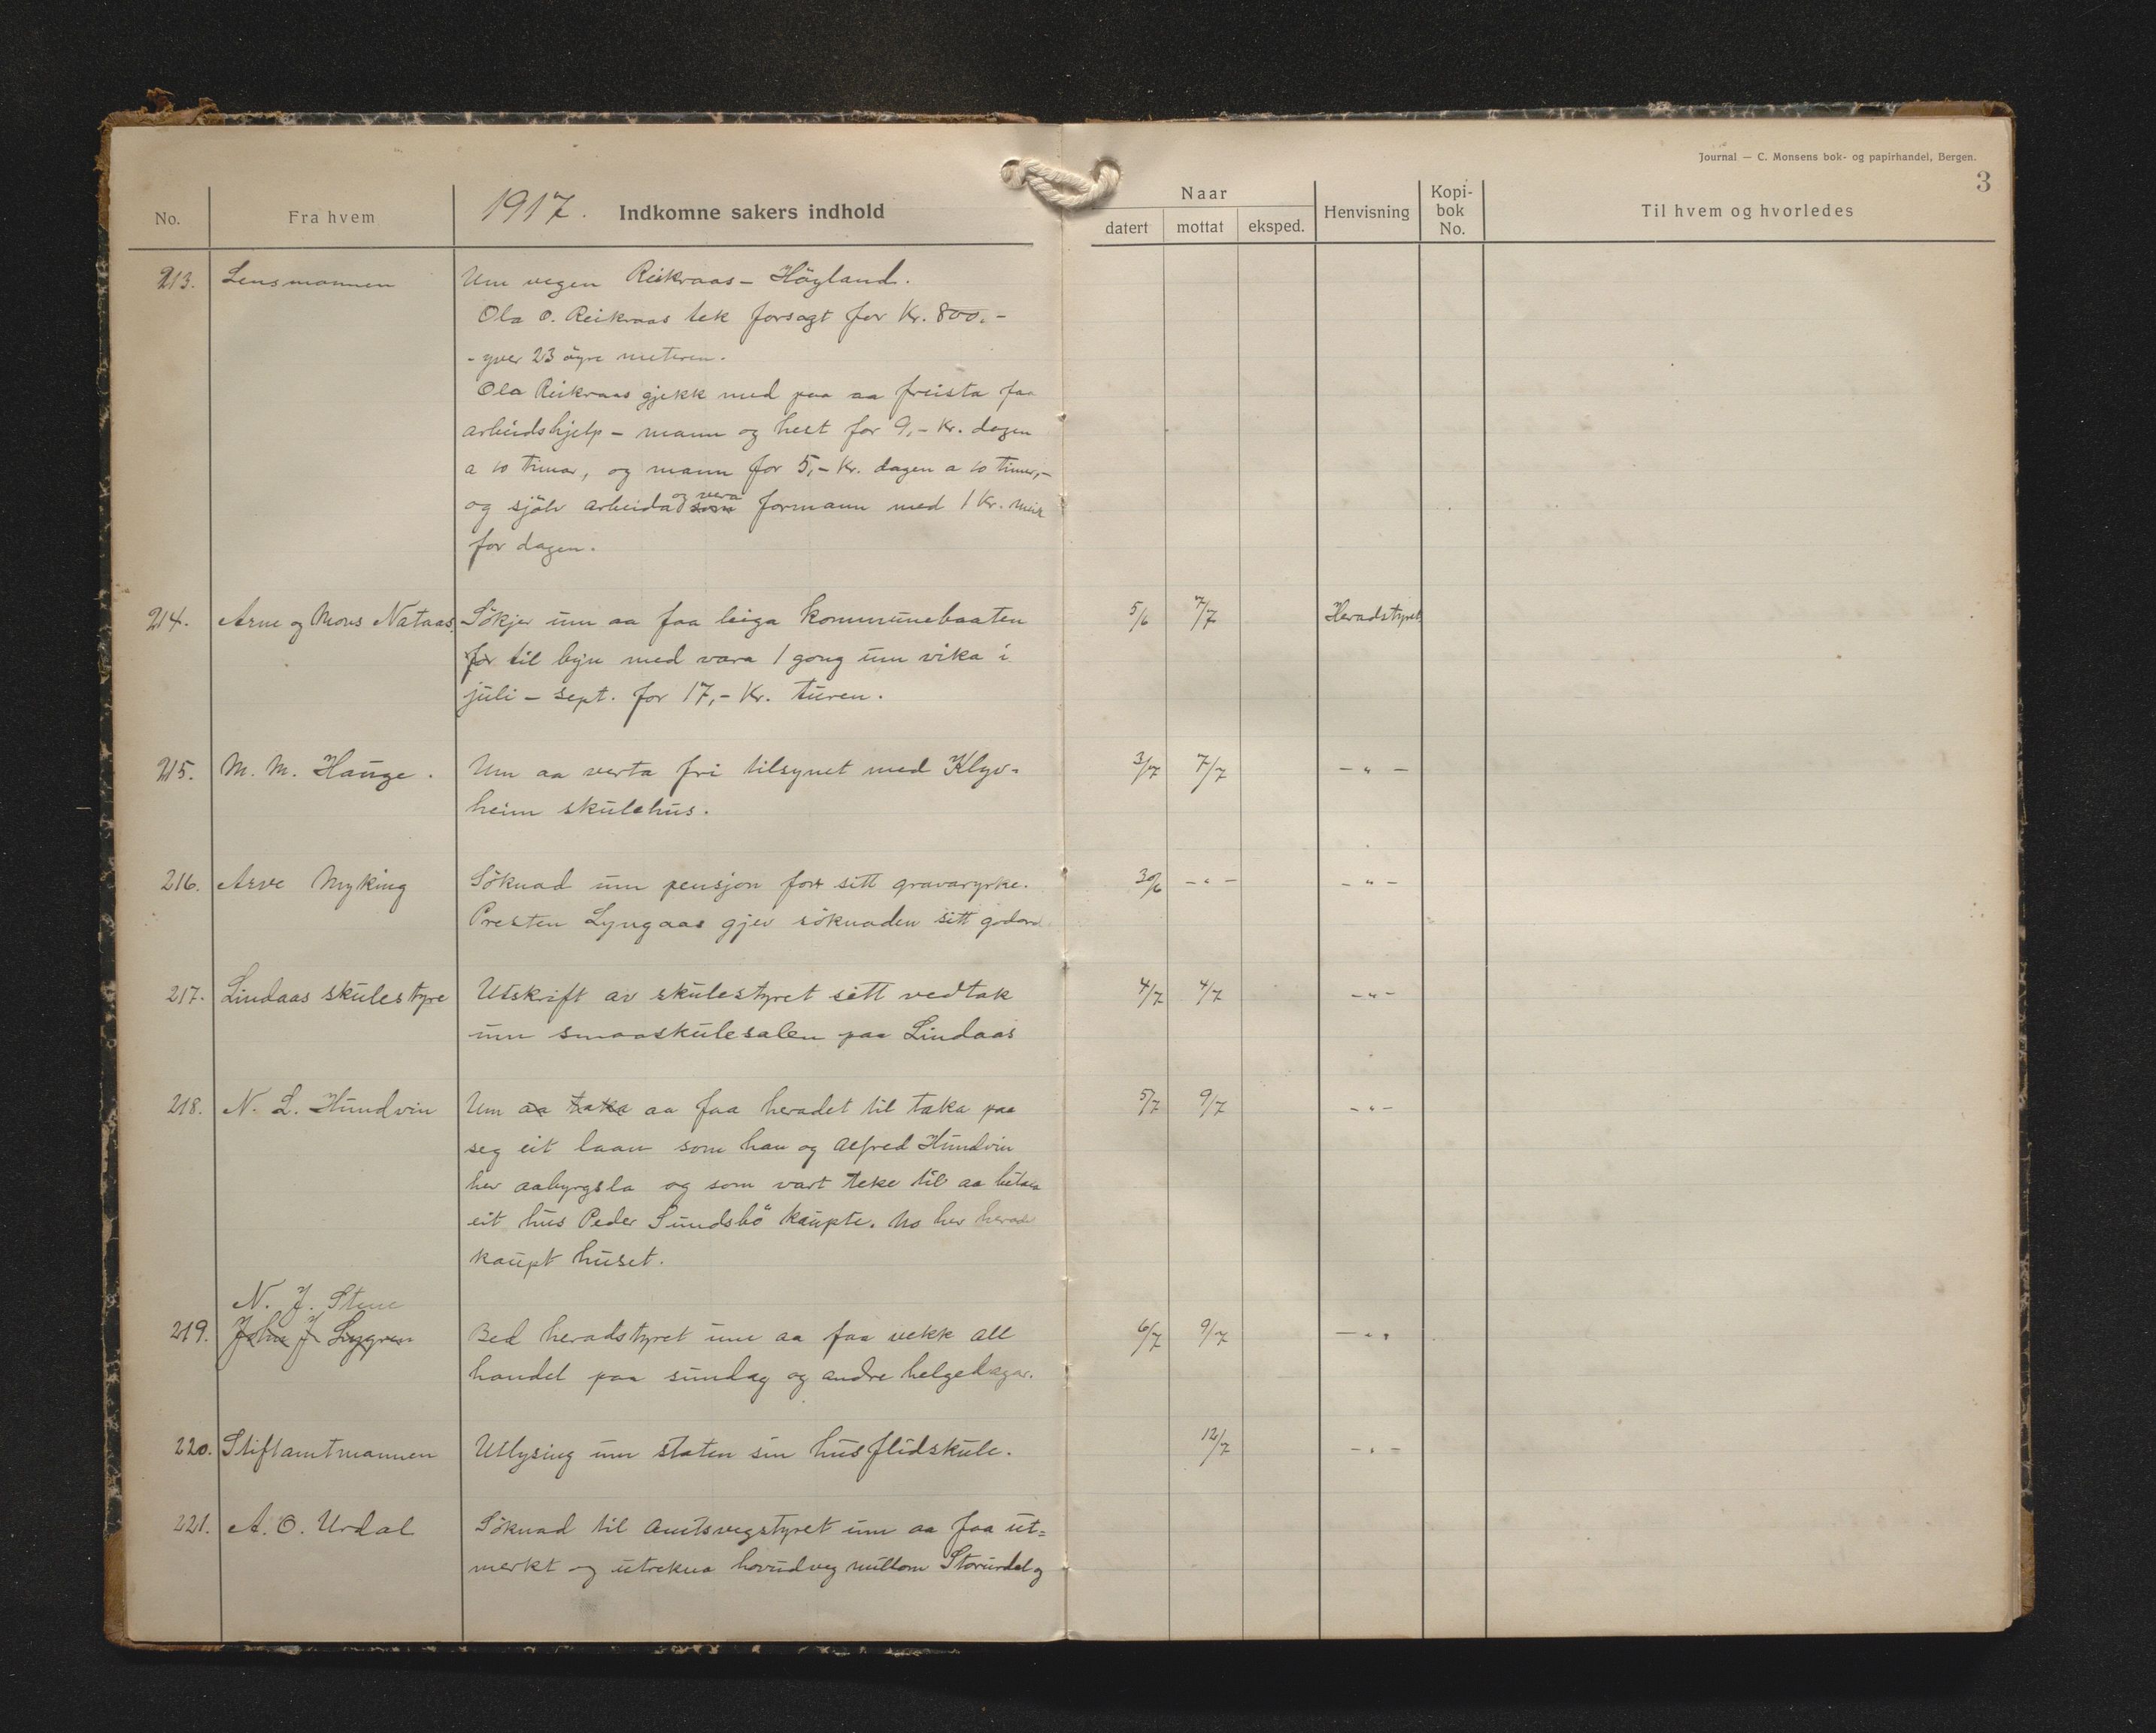 Journal — C. Monsens bok- og papirhandel, Bergen.
3
No. Fra hvem 1917. Indkomne sakers indhold Naar datert mottat eksped. Henvisning Kopi-bok No. Til hvem og hvorledes
213. Lensmannen Um vegen Reikraas - Höyland.
Ola O. Reikraas tek forsagt for Kr. 800.-
- yver 23 öyre meteren.
Ola Reikraas gjekk med paa aa freista faa
arbeidshjelp - mann og hest for 9,- Kr. dagen
a 10 timar, og mann for 5,- Kr. dagen a 10 timar,-
og sjölv arbeida og vera som formann med 1 Kr. meir
for dagen.
214. Arne og Mons Nataas. Sökjer um aa faa leiga kommunebaaten 5/6 7/7 Heradstyret
for til byn med vara 1 gong um vika i
juli - sept. for 17,- Kr. turen.
215. M. M. Hauge. Um aa verta fri tilsynet med Klyv= 3/7 7/7 - " -
heim skulehus.
216. Arve Myking Söknad um pensjon for sitt gravaryrke. 30/6 - " - - " -
Presten Lyngaas gjev söknaden sitt godord
217. Lindaas skulestyre Utskrift av skulestyret sitt vedtak 4/7 4/7 - " -
um smaaskulesalen paa Lindaas
218. N. L. Hundvin Um aa taka aa faa heradet til taka paa 5/7 9/7 - " -
seg eit laan som han og Alfred Hundvin
hev aabyrgsla og som vart teke til aa betala
eit hus Peder Sundsbö kaupte. No hev herad
kaupt huset.
N. J. Stene
219. John J Lygren Bed heradstyret um aa faa vekk all 6/7 9/7 - " -
handel paa sundag og andre helgedagar.
220. Stiftamtmannen Utlysing um staten sin husflidskule. 12/7 - " -
221. A. O. Urdal Söknad til Amtsvegstyret um aa faa ut=
merkt og utrekna hovudveg millom Storurdal og